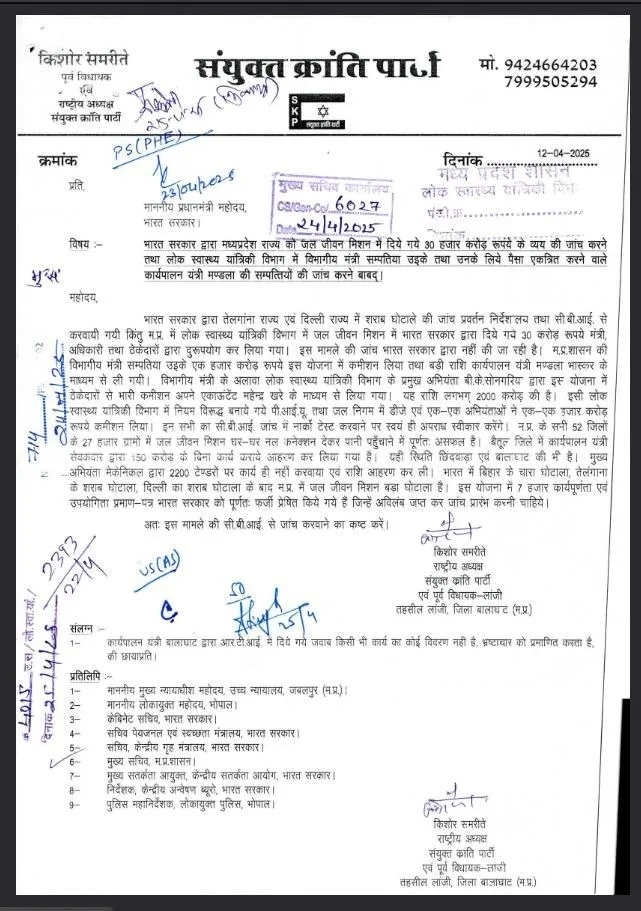 किशोर समरीते
पुर्व विधायक
एवं
राष्ट्रीय अध्यक्ष
संयुक्त क्रांति पार्टी
संयुक्त क्रांति पार्टी
SKP
संयुक्त क्रांति पार्टी
मो. 9424664203
7999505294
25-4-25
PS (PHE)
23/04/2025
क्रमांक
दिनांक 12-04-2025
मध्य प्रदेश शासन
लोक स्वास्थ्य यांत्रिकी विभ
पंजी.क्र.
दिनांक
मुख्य सचिव कार्यालय
CS/Gen-Co/ 6027
Date 24/4/2025
प्रति,
माननीय प्रधानमंत्री महोदय,
भारत सरकार।
विषय :- भारत सरकार द्वारा मध्यप्रदेश राज्य को जल जीवन मिशन में दिये गये 30 हजार करोड़ रूपये के व्यय की जांच करने
तथा लोक स्वास्थ्य यांत्रिकी विभाग में विभागीय मंत्री सम्पतिया उइके तथा उनके लिये पैसा एकत्रित करने वाले
कार्यपालन यंत्री मण्डला की सम्पत्तियों की जांच करने बाबद्।
महोदय,
भारत सरकार द्वारा तेलगांना राज्य एवं दिल्ली राज्य में शराब घोटाले की जांच प्रवर्तन निर्देशालय तथा सी.बी.आई. से
करवायी गयी किंतु म.प्र. में लोक स्वास्थ्य यांत्रिकी विभाग में जल जीवन मिशन में भारत सरकार द्वारा दिये गये 30 करोड़ रूपये मंत्री,
अधिकारी तथा ठेकेदारों द्वारा दुरूपयोग कर लिया गया। इस मामले की जांच भारत सरकार द्वारा नहीं की जा रही है। म.प्र.शासन की
विभागीय मंत्री सम्पतिया उइके एक हजार करोड़ रूपये इस योजना में कमीशन लिया तथा बडी राशि कार्यपालन यंत्री मण्डला भास्कर के
माध्यम से ली गयी। विभागीय मंत्री के अलावा लोक स्वास्थ्य यांत्रिकी विभाग के प्रमुख अभियंता बी.के.सोनगरिया द्वारा इस योजना में
ठेकेदारों से भारी कमीशन अपने एकाऊटेंट महेन्द्र खरे के माध्यम से लिया गया। यह राशि लगभग 2000 करोड़ की है। इसी लोक
स्वास्थ्य यांत्रिकी विभाग में नियम विरूद्ध बनाये गये पी.आई.यू. तथा जल निगम में डीजे एवं एक-एक अभियंताओं ने एक-एक हजार करोड़
रूपये कमीशन लिया। इन सभी का सी.बी.आई. जांच में नार्को टेस्ट करवाने पर स्वयं ही अपराध स्वीकार करेंगे। म.प्र. के सभी 52 जिलों
के 27 हजार ग्रामों में जल जीवन मिशन घर-घर नल कनेक्शन देकर पानी पहुँचाने में पूर्णतः असफल है। बैतूल जिले में कार्यपालन यंत्री
सेवकवार द्वारा 150 करोड़ के बिना कार्य कराये आहरण कर लिया गया है। यही स्थिति छिंदवाड़ा एवं बालाघाट की भी है। मुख्य
अभियंता मेकेनिकल द्वारा 2200 टेण्डरों पर कार्य ही नहीं करवाया एवं राशि आहरण कर ली। भारत में बिहार के चारा घोटाला, तेलगाना
के शराब घोटाला, दिल्ली का शराब घोटाला के बाद म.प्र. में जल जीवन मिशन बड़ा घोटाला है। इस योजना में 7 हजार कार्यपूर्णता एवं
उपयोगिता प्रमाण-पत्र भारत सरकार को पूर्णतः फर्जी प्रेषित किये गये हैं जिन्हें अविलंब जप्त कर जांच प्रारंभ करनी चाहिये।
अतः इस मामले की सी.बी.आई. से जांच करवाने का कष्ट करें।
किशोर समरीते
राष्ट्रीय अध्यक्ष
संयुक्त क्रांति पार्टी
एवं पुर्व विधायक-लांजी
तहसील लांजी, जिला बालाघाट (म.प्र.)
2393
22/4
US(AS)
SO
25/4
संलग्न :-
1- कार्यपालन यंत्री बालाघाट द्वारा आर.टी.आई. में दिये गये जवाब किसी भी कार्य का कोई विवरण नहीं है, भ्रष्टाचार को प्रमाणित करता है,
की छायाप्रति।
प्रतिलिपि :-
1- माननीय मुख्य न्यायाधीश महोदय, उच्च न्यायालय, जबलपुर (म.प्र.)।
2- माननीय लोकायुक्त महोदय, भोपाल।
3- केबिनेट सचिव, भारत सरकार।
4- सचिव पेयजल एवं स्वच्छता मंत्रालय, भारत सरकार।
5- सचिव, केन्द्रीय गृह मंत्रालय, भारत सरकार।
6- मुख्य सचिव, म.प्र.शासन।
7- मुख्य सतर्कता आयुक्त, केन्द्रीय सतर्कता आयोग, भारत सरकार।
8- निर्देशक, केन्द्रीय अन्वेषण ब्यूरो, भारत सरकार।
9- पुलिस महानिर्देशक, लोकायुक्त पुलिस, भोपाल।
क्र. 4015 उ.स/लो.स्वा.यां./
दिनांक 25/4/25
किशोर समरीते
राष्ट्रीय अध्यक्ष
संयुक्त क्रांति पार्टी
एवं पूर्व विधायक-लांजी
तहसील लांजी, जिला बालाघाट (म.प्र.)